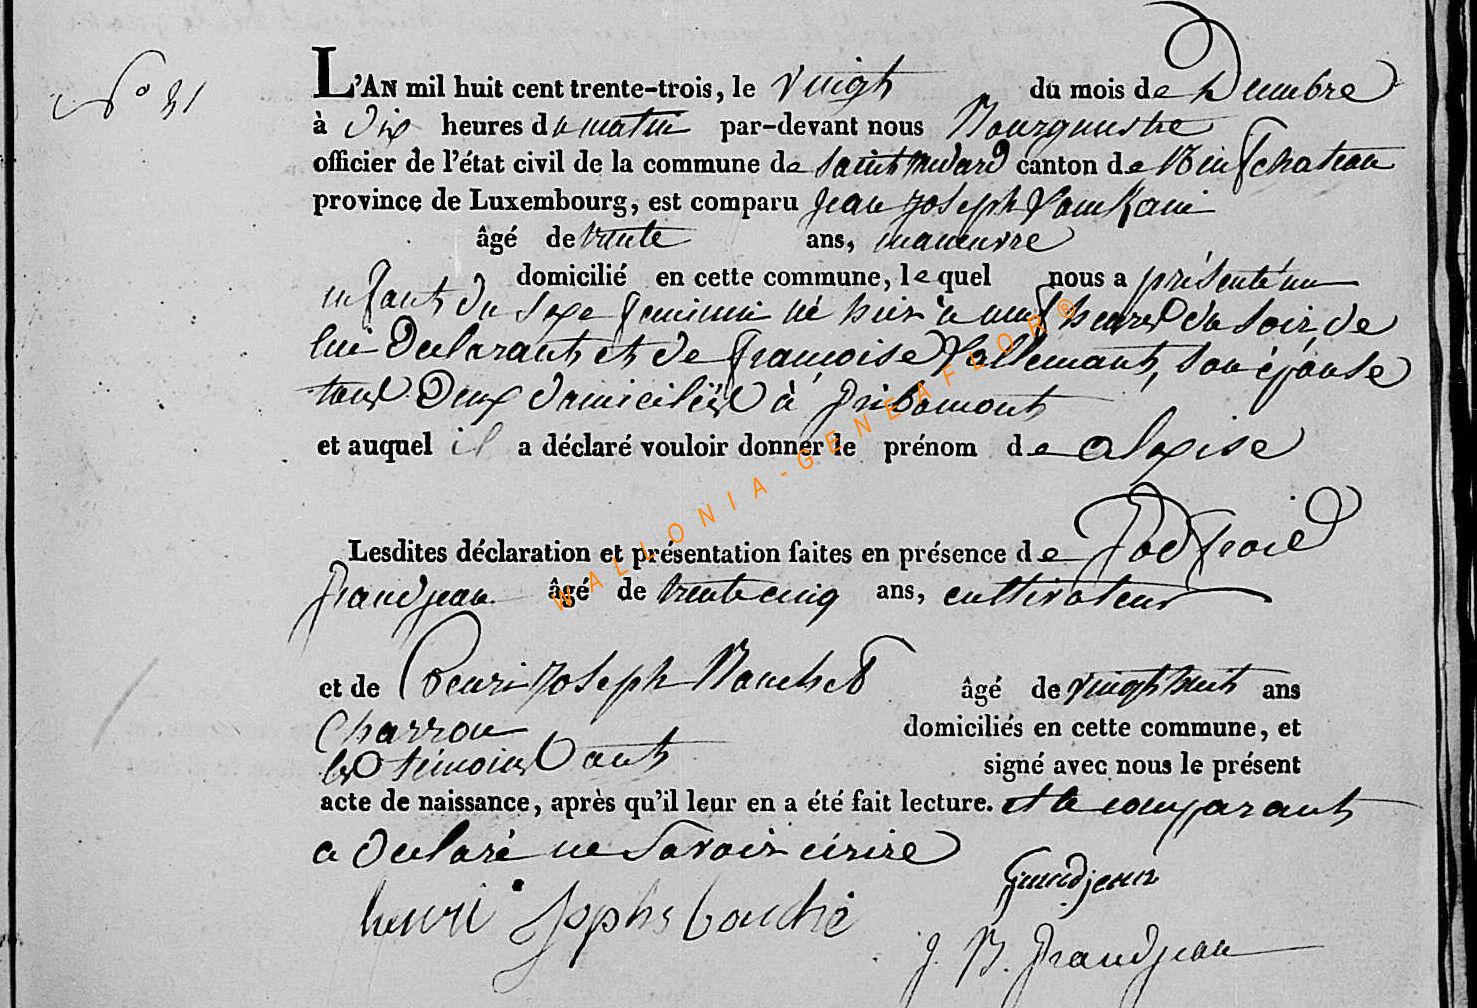 N° 31
L'AN mil huit cent trente-trois, le vingt du mois de Decembre
à Dix heures du matin par-devant nous Bourgmestre
officier de l'état civil de la commune de Saint Medard canton de Neufchateau
province de Luxembourg, est comparu Jean Joseph
âgé de trente ans, maneuvre
domicilié en cette commune, lequel nous a présenté un
enfant du sexe feminin né hier à neuf heures du soir de
lui Declarant et de françoise, son épouse
tous Deux domiciliés à Gribomont
et auquel il a déclaré vouloir donner le prénom de alexise
Lesdites déclaration et présentation faites en présence de Godfroid
Grandjean âgé de trente cinq ans, cultivateur
et de henri Joseph Bouché âgé de vingt huit ans
Charron domiciliés en cette commune, et
les témoins ont signé avec nous le présent
acte de naissance, après qu'il leur en a été fait lecture. et le comparant
a declaré ne savoir écrire
Grandjean
henri Josphe bouché
J. B. Grandjean
WALLONIA-GENEAFLOR®